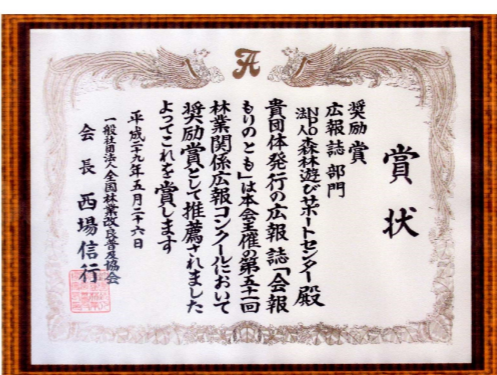 賞状
奨励賞
広報誌部門
NPO法人森林遊びサポートセンター殿
貴団体発行の広報誌「会報
もりのとも」は本会主催の第五十一回
林業関係広報コンクールにおいて
奨励賞として推薦されました
よってこれを賞します
平成二十九年五月二十六日
一般社団法人全国林業改良普及協会
会長 西場信行